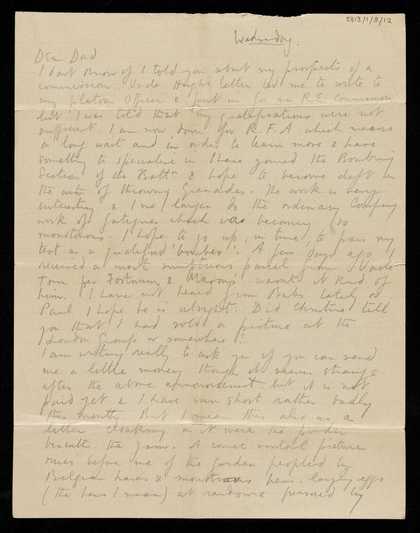 Wednesday.
Dear Dad
I dont know if I told you about my prospects of a
commission. Uncle Hugh's letter led me to write to
my platoon officer & put in for an R.E. commission
but I was told that my qualifications were not
sufficient. I am now down for R.F.A which means
a long wait and in order to learn more & have
something to specialise in I have joined the Bombing
Section of the Batt. & hope to become deft in
the art of throwing Grenades. The work is very
interesting & I no longer do the ordinary Company
work of fatigues which was becoming so
monotonous. I hope to go up, in time, to pass my
test as a qualified 'bomber'. A few days ago I
received a most sumptuous parcel from Uncle
Tom per Fortnum & Mason. wasnt it kind of
him. I have not heard from Babs lately or
Paul I hope he is alright. Did Christine tell
you that I had sold a picture at the
London Group or somewhere?
I am writing really to ask you if you can send
me a little money though it seems strange
after the above announcement but it is not
paid yet & I have run short rather badly
this month. But I mean this also as a
letter cloaking as it were the
beneath the jam. A comic mental picture
rises before me of the garden peopled by
Belgian hares & monstrous hens laying eggs
(the hens I mean) at random pursued by